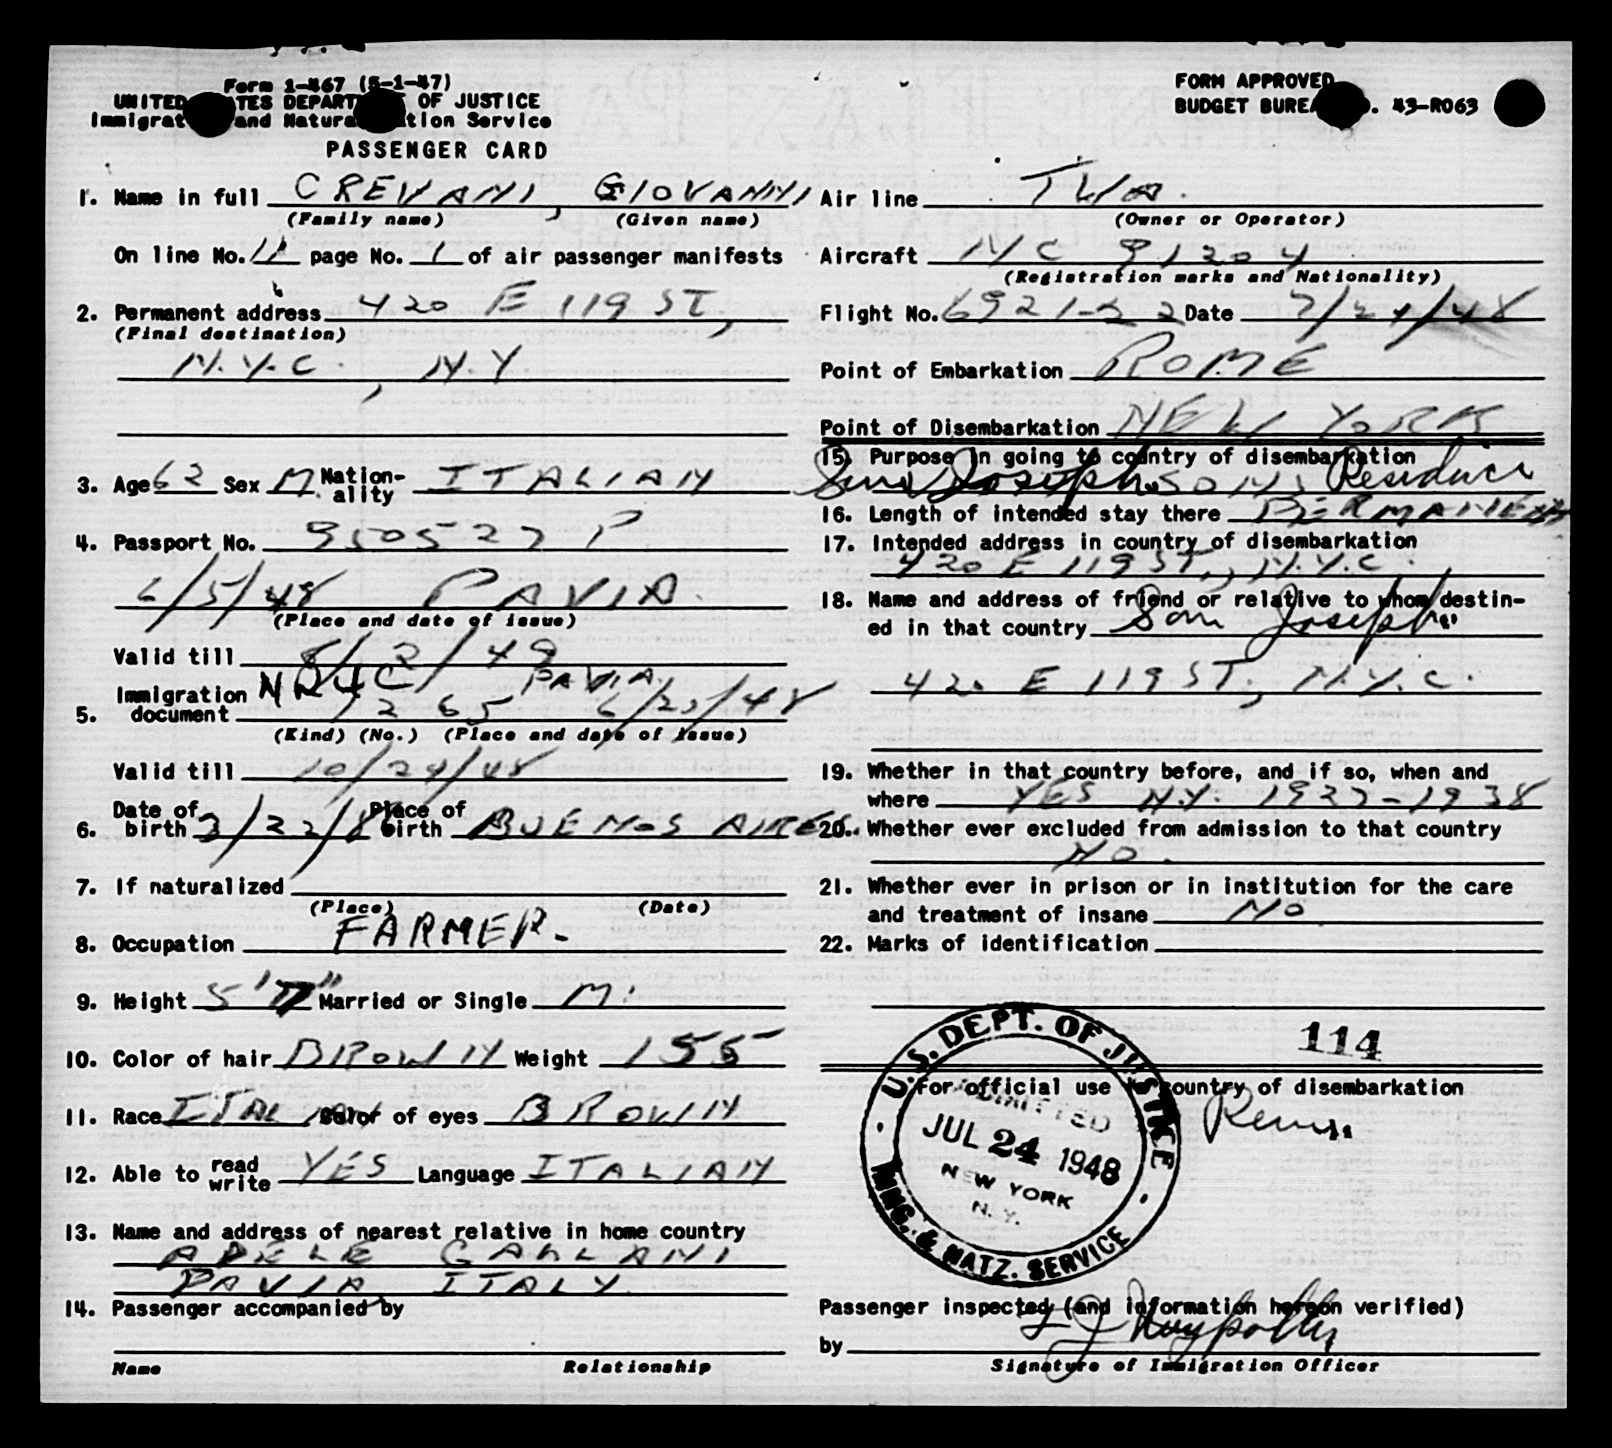 Form I-467 (5-1-47)
UNITED STATES DEPARTMENT OF JUSTICE
Immigration and Naturalization Service
PASSENGER CARD
1. Name in full CREVANI, GIOVANNI
(Family name) (Given name)
On line No. 11 page No. 1 of air passenger manifests
2. Permanent address 420 E 119 ST,
(Final destination)
N.Y.C., N.Y
3. Age 62 Sex M. Nationality ITALIAN
4. Passport No. 950527 P
6/5/48 PAVIA.
(Place and date of issue)
Valid till 6/2/49
5. Immigration document 1265 PAVIA 6/25/48
(Kind) (No.) (Place and date of issue)
Valid till 10/24/48
6. Date of birth 3/22/86 Place of birth BUENOS AIRES.
7. If naturalized
(Place) (Date)
8. Occupation FARMER-
9. Height 5' Married or Single M.
10. Color of hair BROWN Weight 155
11. Race ITALIAN Color of eyes BROWN
12. Able to read write YES Language ITALIAN
13. Name and address of nearest relative in home country
ADELE
PAVIA ITALY
14. Passenger accompanied by
Name Relationship
FORM APPROVED
BUDGET BUREAU NO. 43-R063
Air line TWA.
(Owner or Operator)
Aircraft NC 91204
(Registration marks and Nationality)
Flight No. 6921-22 Date 7/24/48
Point of Embarkation ROME
Point of Disembarkation NEW YORK
15. Purpose in going to country of disembarkation
Joseph SONS Residence
16. Length of intended stay there PERMANENT
17. Intended address in country of disembarkation
420 E 119 ST., N.Y.C.
18. Name and address of friend or relative to whom destin-
ed in that country Son Joseph
420 E 119 ST., N.Y.C.
19. Whether in that country before, and if so, when and
where YES N.Y. 1927-1938
20. Whether ever excluded from admission to that country
NO.
21. Whether ever in prison or in institution for the care
and treatment of insane NO
22. Marks of identification
114
For official use in country of disembarkation
U.S. DEPT. OF JUSTICE
ADMITTED
JUL 24 1948
NEW YORK
N.Y.
IMMG. & NATZ. SERVICE
Passenger inspected (and information hereon verified)
by
Signature of Immigration Officer